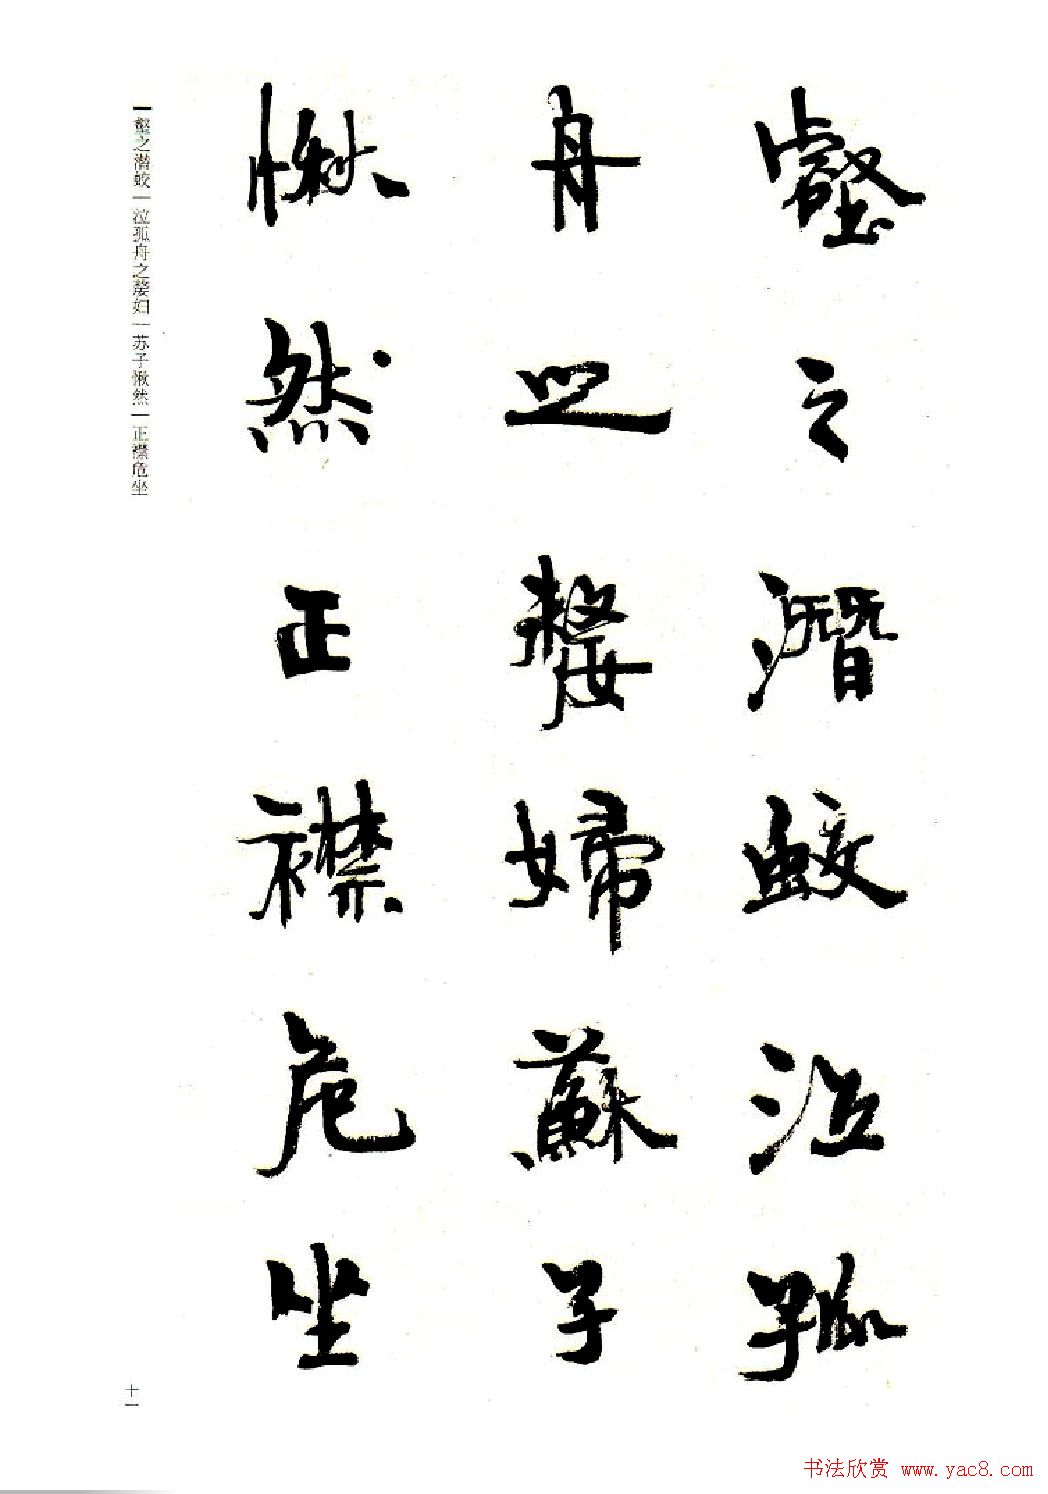 壑之潜蛟泣孤
舟之嫠婦蘇子
愀然正襟危坐
一壑之潜蛟一泣孤舟之嫠妇一苏子愀然一正襟危坐
十一
书法欣赏 www.yac8.com